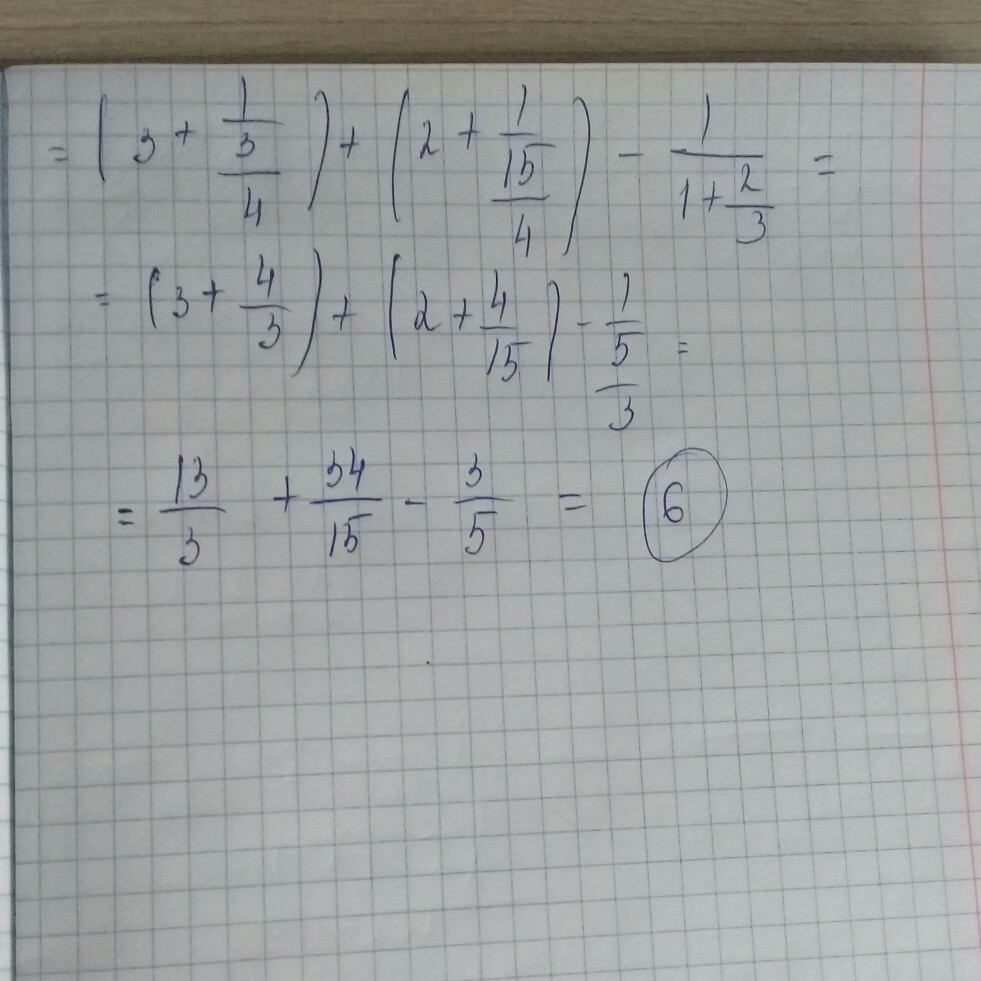 = (3 + 1/(3/4)) + (2 + 1/(15/4)) - 1/(1+2/3) =
= (3 + 4/3) + (2 + 4/15) - 1/(5/3) =
= 13/3 + 34/15 - 3/5 = 6